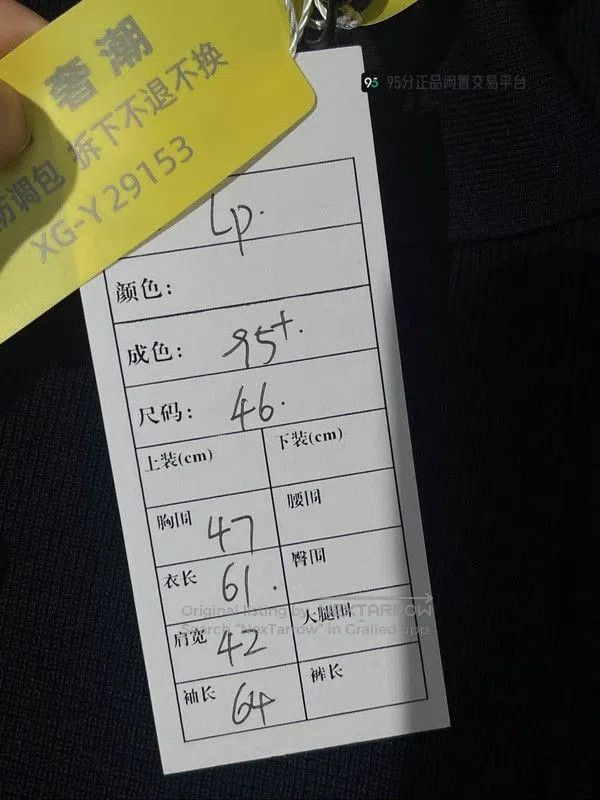 奢潮
防调包 拆下不退不换
XG-Y29153
95 95分正品闲置交易平台
Lp.
颜色:
成色: 95+.
尺码: 46.
上装(cm) 下装(cm)
胸围 47 腰围
衣长 61. 臀围
肩宽 42 大腿围
袖长 64 裤长
Original listing by NEXTARROW
Search "NexTarrow" in Grailed app